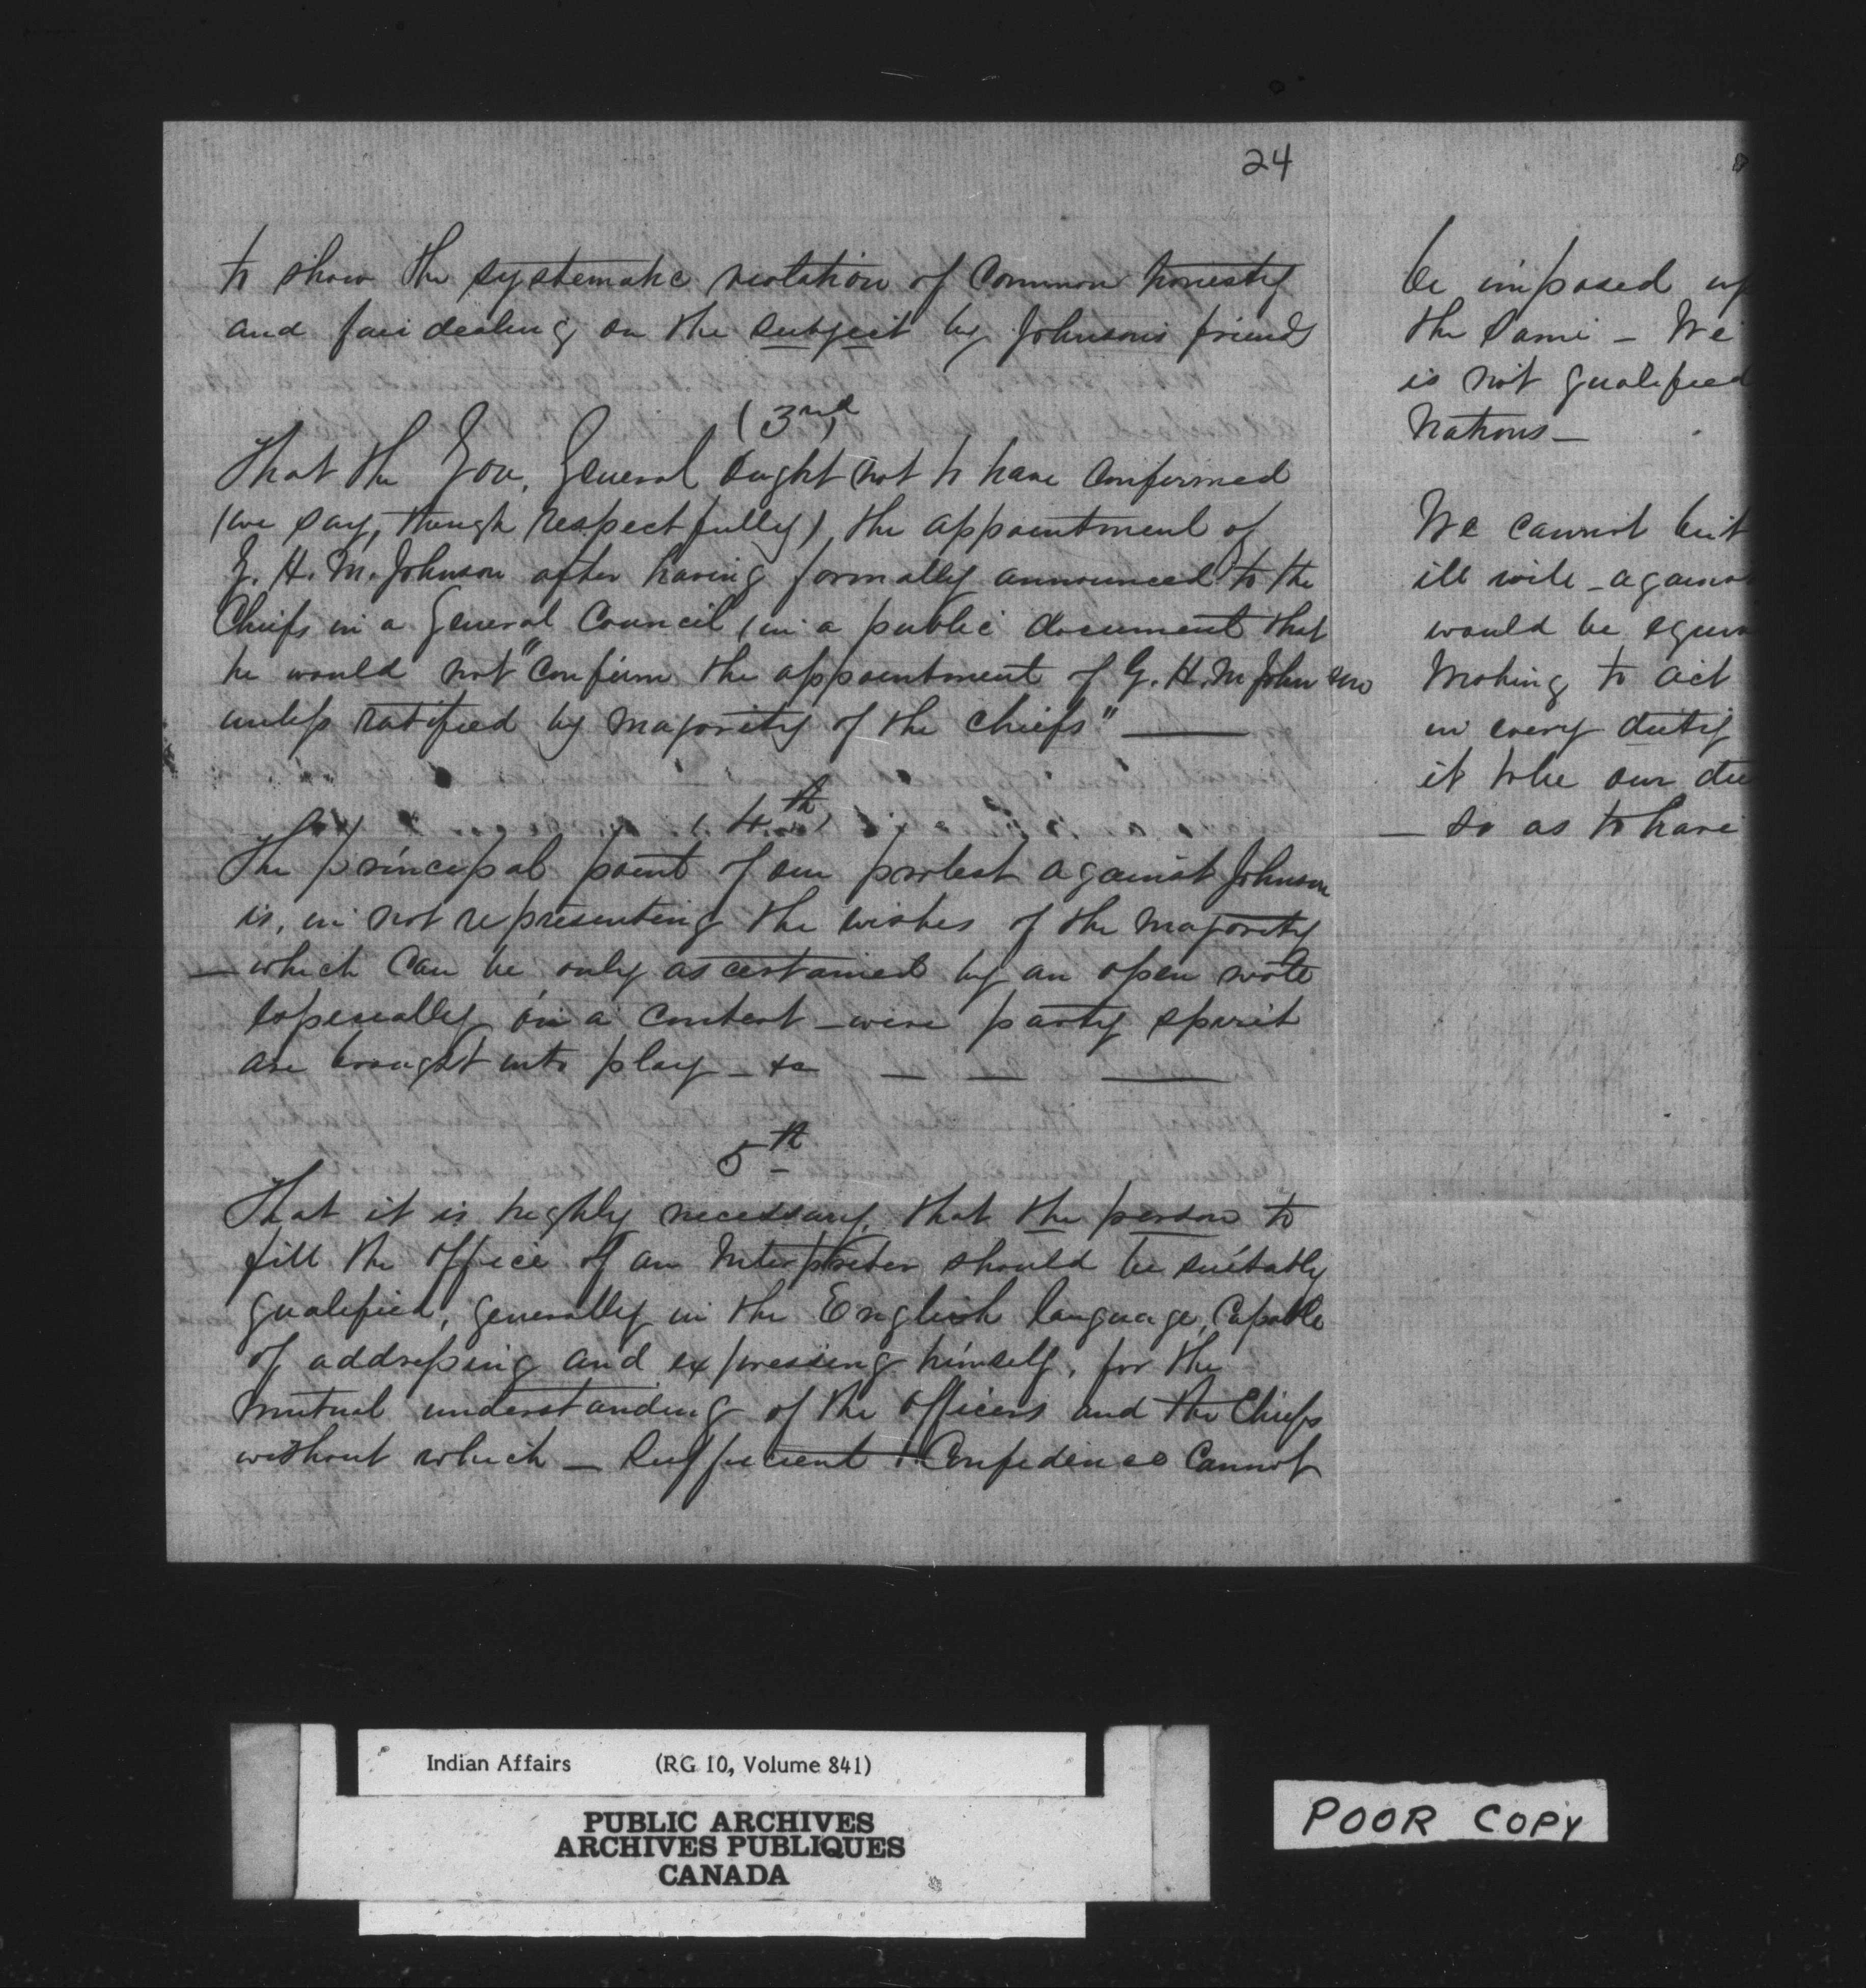 24
to show the systematic violation of Common honesty
and fair dealing on the subject by Johnson's friends
(3rd)
That the Gov. General ought not to have Confirmed
(we say, though respectfully), the appointment of
G. H. M. Johnson after having formally announced to the
Chiefs in a General Council, in a public document that
he would not "Confirm the appointment of G. H. M Johnson
unless ratified by majority of the chiefs" —
(4th)
The principal point of our protest against Johnson
is, in not representing the wishes of the Majority
— which Can be only ascertained by an open vote
especially in a Contest — were party spirit
are brought into play — &c — — —
5th
That it is highly necessary, that the person to
fill the office of an Interpreter should be suitably
qualified, generally in the English language, Capable
of addressing and expressing himself, for the
mutual understanding of the officers and the Chiefs
without which — Sufficient Confidence Cannot
be imposed up
the Same — We
is not qualified
Nations —
We cannot but
ill will — against
would be equiv
Making to act
in every duty
it to be our du
— So as to have
Indian Affairs (RG 10, Volume 841)
PUBLIC ARCHIVES
ARCHIVES PUBLIQUES
CANADA
POOR COPY